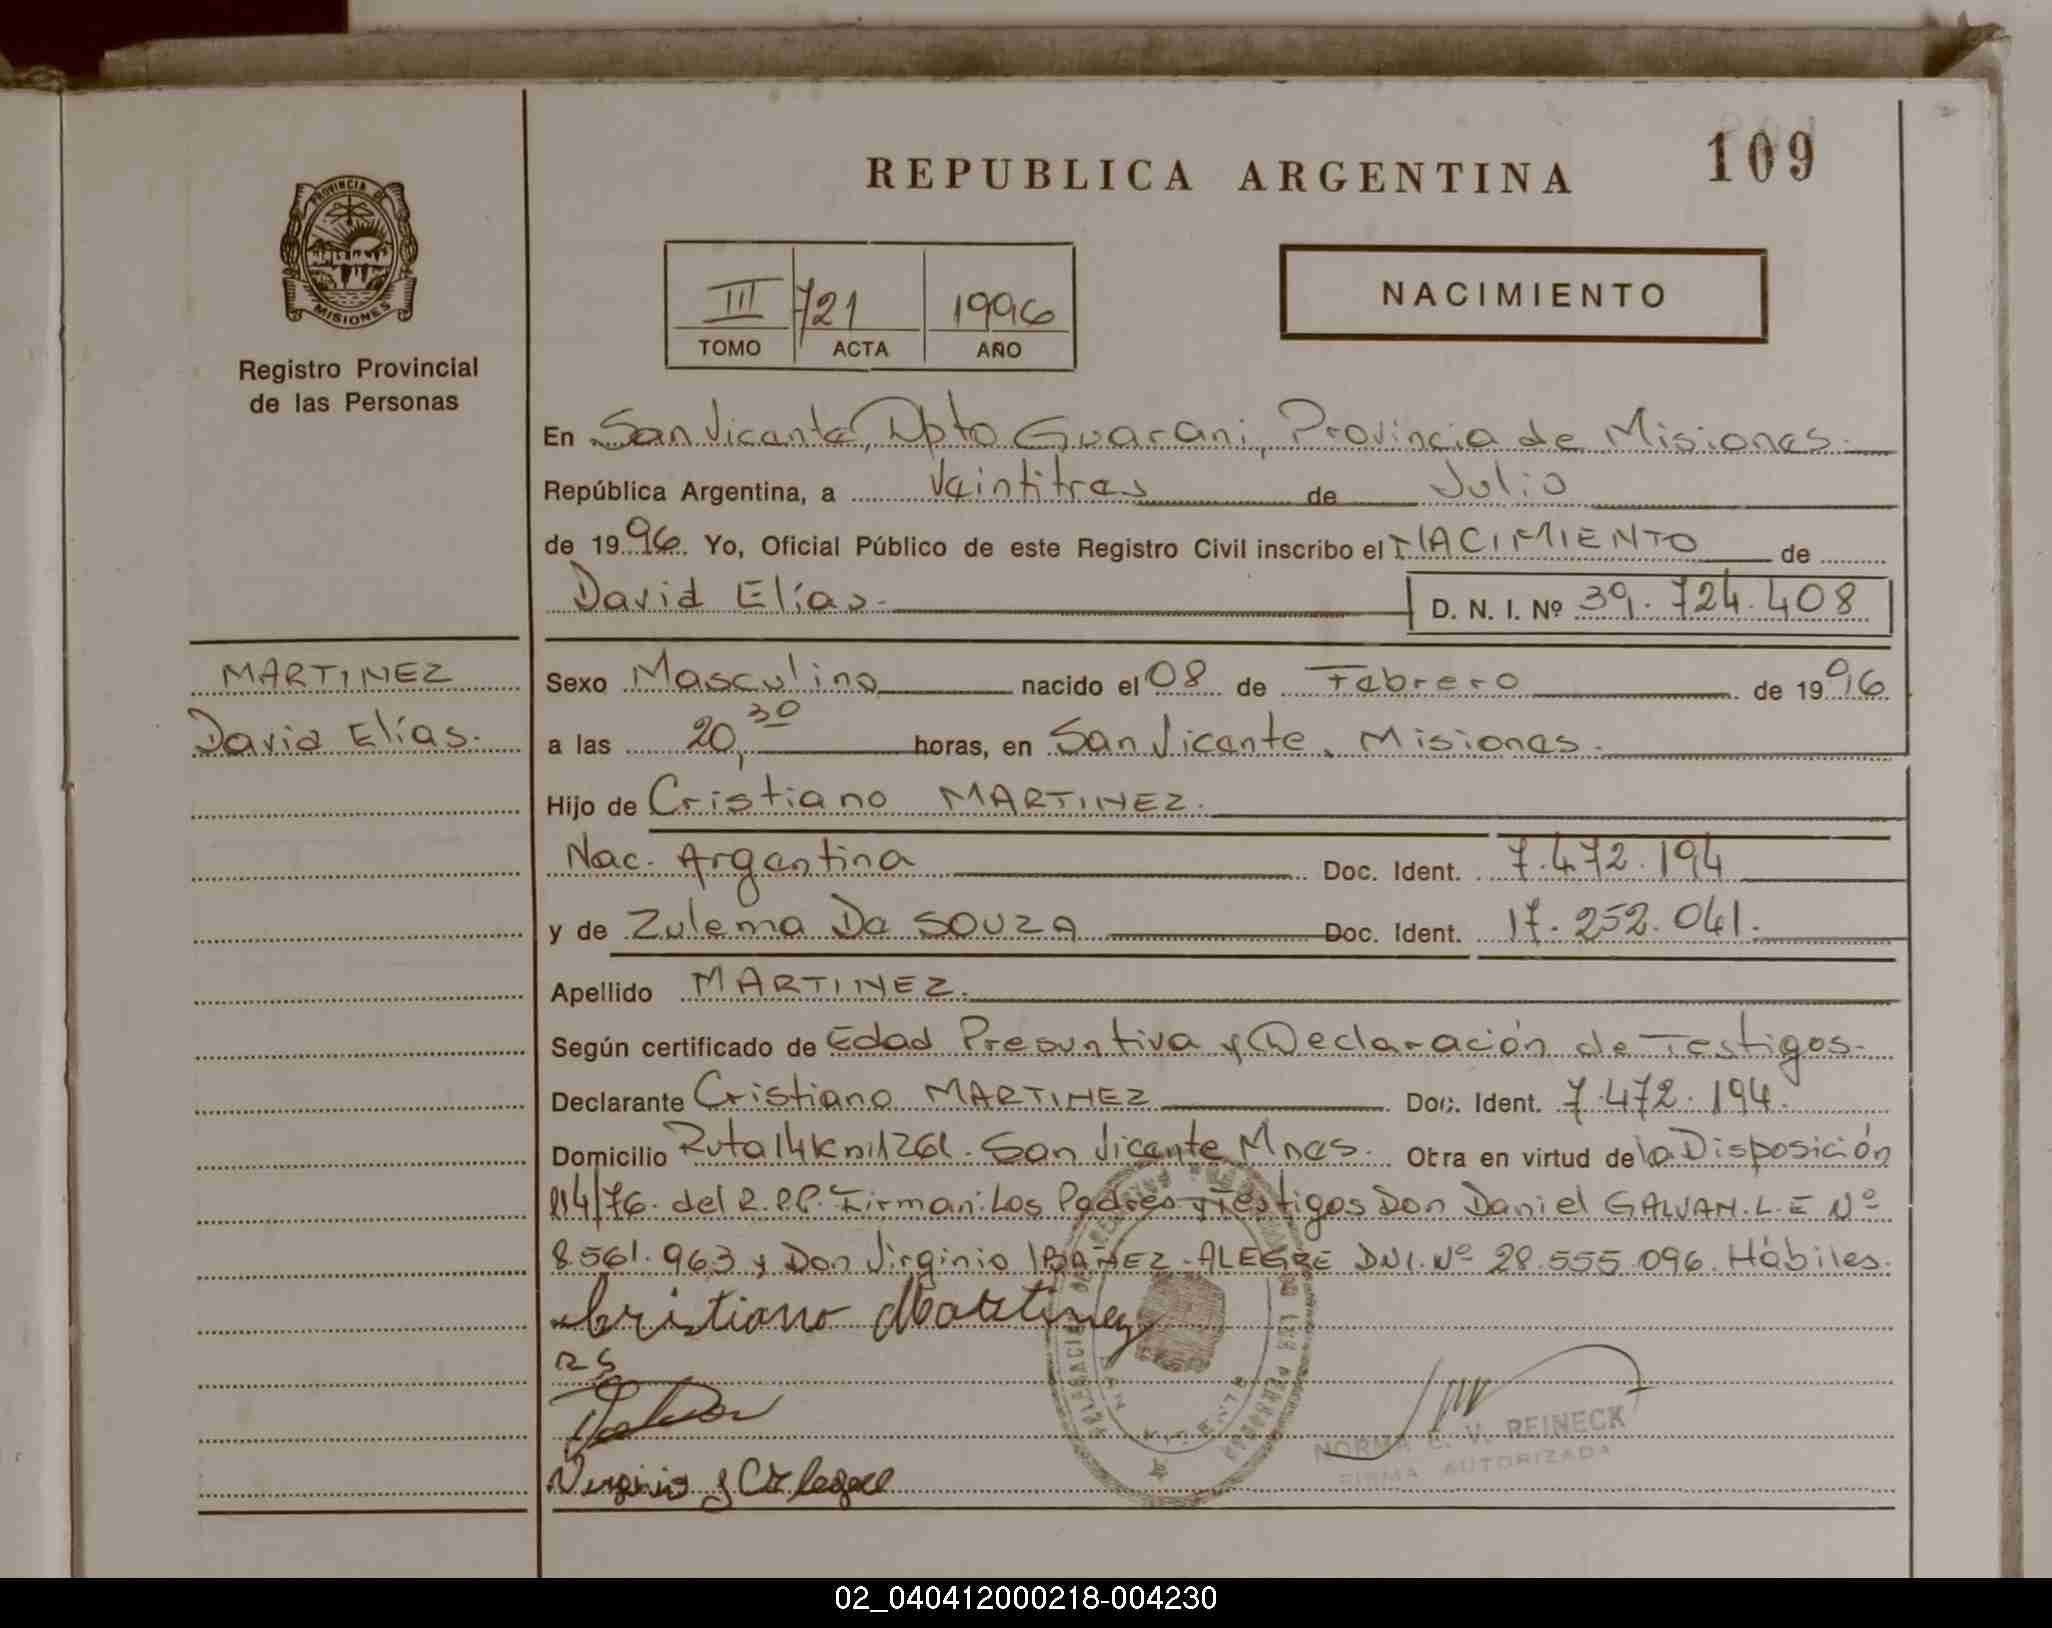 REPUBLICA ARGENTINA
109
PROVINCIA DE
MISIONES
Registro Provincial
de las Personas
III 721 1996
TOMO ACTA AÑO
NACIMIENTO
En San Vicente, Dpto Guarani, Provincia de Misiones.
República Argentina, a Veintitres de Julio
de 1996. Yo, Oficial Público de este Registro Civil inscribo el NACIMIENTO de
David Elías. D. N. I. Nº 39.724.408
MARTINEZ
David Elías.
Sexo Masculino nacido el 08 de Febrero de 1996
a las 20,30 horas, en San Vicente, Misiones.
Hijo de Cristiano MARTINEZ.
Nac. Argentina Doc. Ident. 7.472.194
y de Zulema Da SOUZA Doc. Ident. 17.252.041.
Apellido MARTINEZ.
Según certificado de Edad Presuntiva y Declaración de Testigos.
Declarante Cristiano MARTINEZ Doc. Ident. 7.472.194.
Domicilio Ruta 14 Km 1261. San Vicente Mnes. Otra en virtud de la Disposición
114/76. del R.P.P. Firman: Los Padres y Testigos Don Daniel GALVAN. L.E Nº
8.561.963 y Don Virginio IBAÑEZ-ALEGRE DNI. Nº 28.555.096. Hábiles.
Cristiano Martinez
NORMA E. V. REINECK
FIRMA AUTORIZADA
02_040412000218-004230